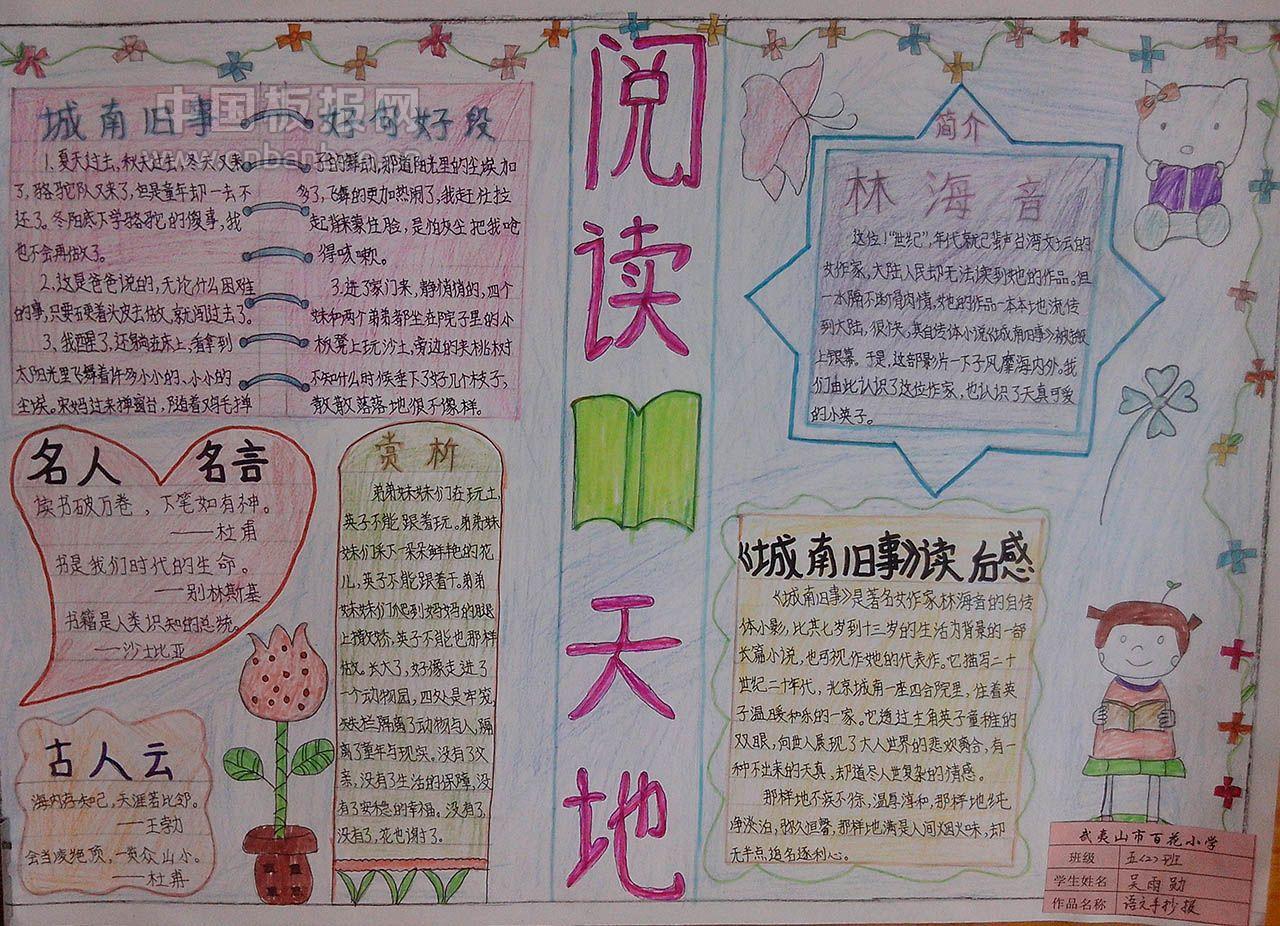 中国板报网
城南旧事 好句好段
1.夏天过去,秋天过去,冬天又来
了,骆驼队又来了,但是童年却一去不
还了。冬阳底下学骆驼的傻事,我
也不会再做了。
2.这是爸爸说的,无论什么困难
的事,只要硬着头皮去做,就闯过去了。
3、我醒了,还躺在床上,看到
太阳光里飞舞着许多小小的、小小的
尘埃。宋妈过来掸窗台,随着鸡毛掸
子的舞动,那道阳光里的尘埃加
多了,飞舞的更加热闹了,我赶忙拉
起背来蒙住脸,是怕灰尘把我呛
得咳嗽。
3.进了家门来,静悄悄的,四个
妹和两个弟弟都坐在院子里的小
板凳上玩沙土,旁边的夹桃树
不知什么时候垂下了好几个枝子,
散散落落地很不像样。
名人名言
读书破万卷,下笔如有神。
——杜甫
书是我们时代的生命。
——别林斯基
书籍是人类识知的总统。
——沙士比亚
古人云
海内存知己,天涯若比邻。
——王勃
会当凌绝顶,一览众山小。
——杜甫
赏析
弟弟妹妹们在玩土,
英子不能跟着玩。弟弟妹
妹们采下一朵朵鲜艳的花
儿,英子不能跟着干。弟弟
妹妹们爬到妈妈的腿
上撒娇,英子不能也那样
做。长大了,好像走进了
一个动物园,四处是牢笼,
铁栏隔离了动物与人,隔
离了童年与现实。没有了父
亲,没有了生活的保障,没
有了安稳的幸福。没有了,
没有了,花也谢了。
阅读天地
简介
林海音
这位1“世纪”年代就已蜚声台湾文坛的
女作家,大陆人民却无法读到她的作品。但
一水隔不断骨肉情,她的作品一本本地流传
到大陆,很快,其自传体小说《城南旧事》被搬
上银幕。于是,这部影片一下子风靡海内外。我
们由此认识了这位作家,也认识了天真可爱
的小英子。
《城南旧事》读后感
《城南旧事》是著名女作家林海音的自传
体小影,比其七岁到十三岁的生活为背景的一部
长篇小说,也可视作她的代表作。它描写二十
世纪二十年代,北京城南一座四合院里,住着英
子温暖和乐的一家。它透过主角英子童稚的
双眼,向世人展现了大人世界的悲欢离合,有一
种不出来的天真,却道尽人世复杂的情感。
那样地不疾不徐,温厚淳和,那样地纯
净淡泊,弥久恒馨,那样地满是人间烟火味,却
无半点追名逐利心。
武夷山市百花小学
班级 五(2)班
学生姓名 吴雨勋
作品名称 语文手抄报